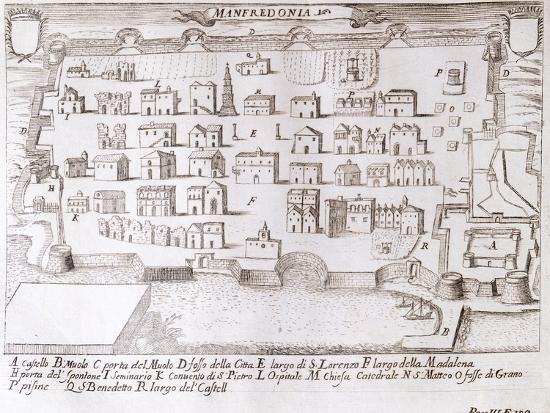 MANFREDONIA
D
Q
D
L
P
I
M
P
O
D
I
E
N
O
H
K
F
R
A
C
B
A Castello B Muolo C porta del Muolo D fosso della Citta E largo di S. Lorenzo F largo della Madalena
H porta del' spontone I Seminario K Conuento di S Pietro L Ospitale M Chiesa Catedrale N S. Matteo O fosse di Grano
P pisine Q S Benedetto R largo del' Castell